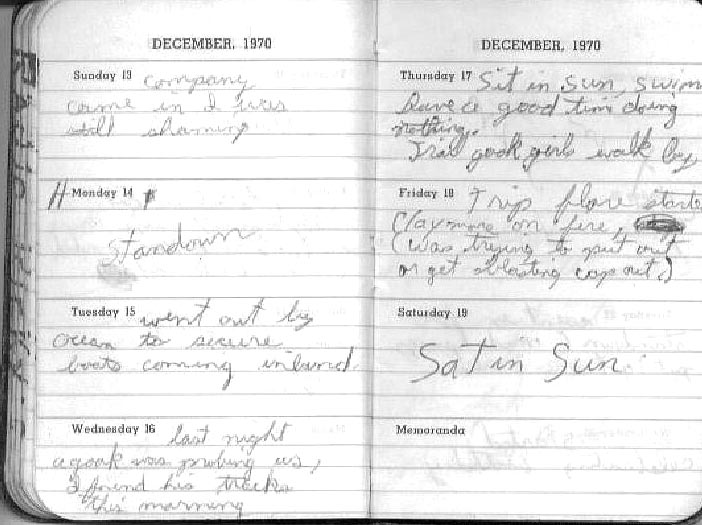 DECEMBER, 1970
Sunday 13 company
came in I was
still shaming
Monday 14
Standown
Tuesday 15 went out by
ocean to secure
boats coming inland.
Wednesday 16 last night
a gook was probing us,
I found his tracks
this morning
DECEMBER, 1970
Thursday 17 Sit in sun, swim
have a good time doing
nothing.
gook girls walk by
Friday 18 Trip flare started
Claymore on fire,
(was trying to put out
or get blasting cap out.)
Saturday 19
Sat in Sun.
Memoranda